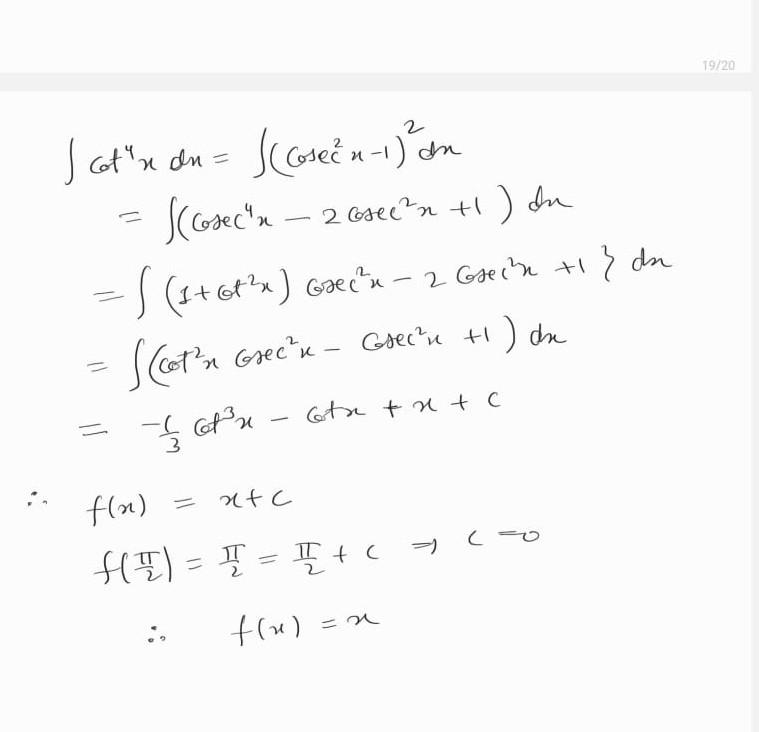 19/20
∫ cot⁴x dx = ∫(cosec²x -1)² dx
= ∫(cosec⁴x - 2 cosec²x +1) dx
= ∫ (1+cot²x) cosec²x - 2 cosec²x +1 } dx
= ∫(cot²x cosec²x - cosec²x +1) dx
= -1/3 cot³x - cotx + x + c
∴ f(x) = x+c
f(π/2) = π/2 = π/2 + c ⇒ c = 0
∴ f(x) = x